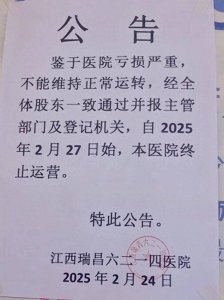 公告
鉴于医院亏损严重,
不能维持正常运转,经全
体股东一致通过并报主管
部门及登记机关,自 2025
年 2 月 27 日始,本医院终
止运营。
特此公告。
江西瑞昌六二一四医院
2025 年 2 月 24 日